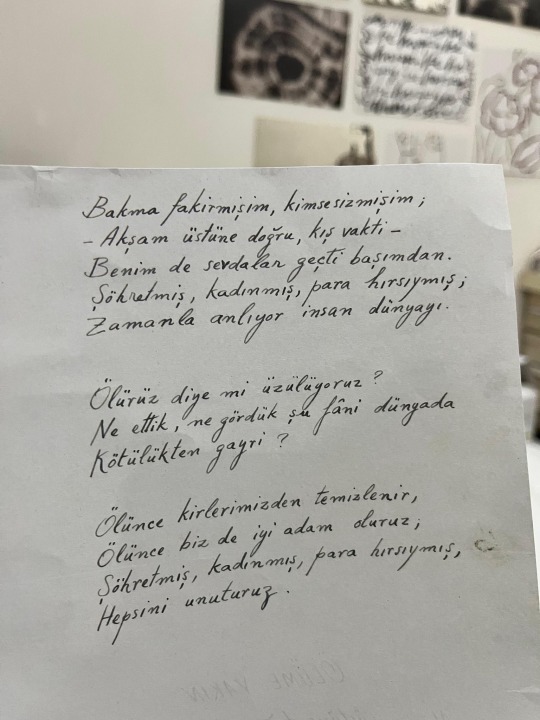 Bakma fakirmişim, kimsesizmişim;
- Akşam üstüne doğru, kış vakti -
Benim de sevdalar geçti başımdan.
Şöhretmiş, kadınmış, para hırsıymış;
Zamanla anlıyor insan dünyayı.
Ölürüz diye mi üzülüyoruz?
Ne ettik, ne gördük şu fâni dünyada
Kötülükten gayri?
Ölünce kirlerimizden temizlenir,
Ölünce biz de iyi adam oluruz;
Şöhretmiş, kadınmış, para hırsıymış,
Hepsini unuturuz.